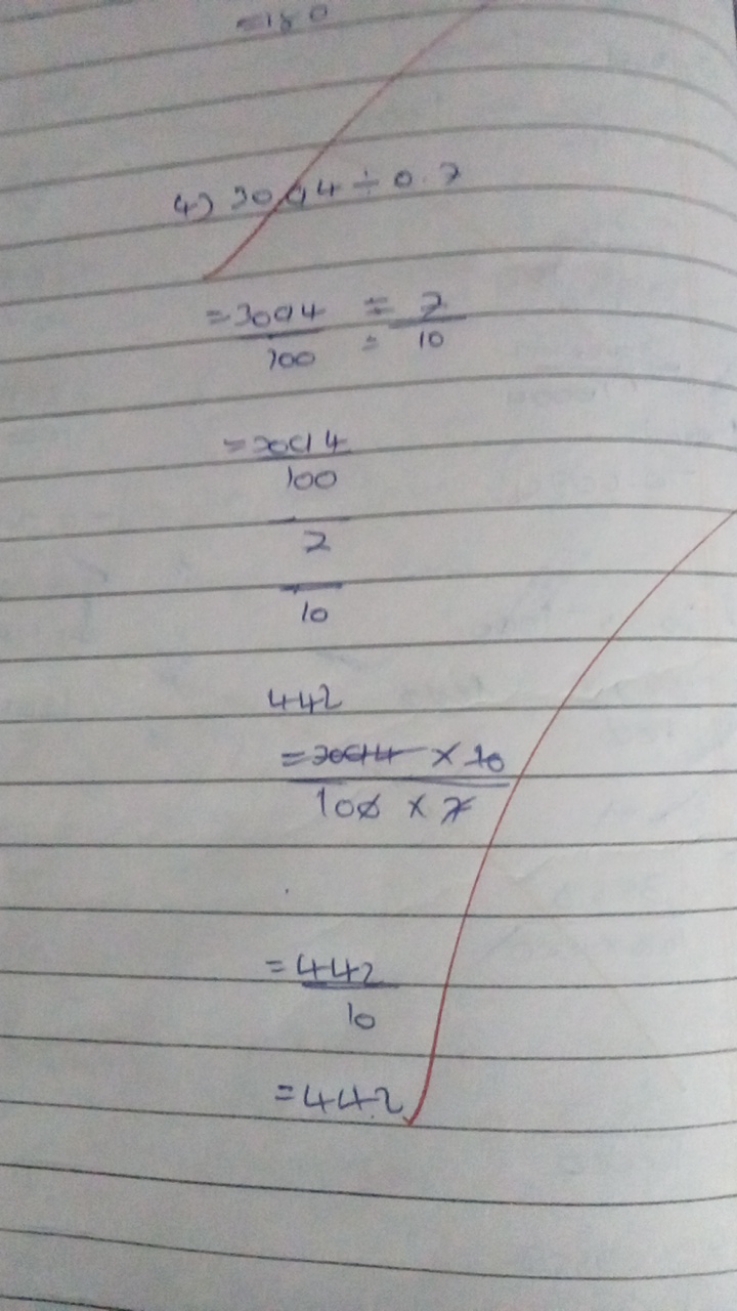 =180
4) 3094 ÷ 0.7
=3094 ÷ 7
100 = 10
=3094
100
7
10
442
=3094 × 10
100 × 7
=442
10
=44.2